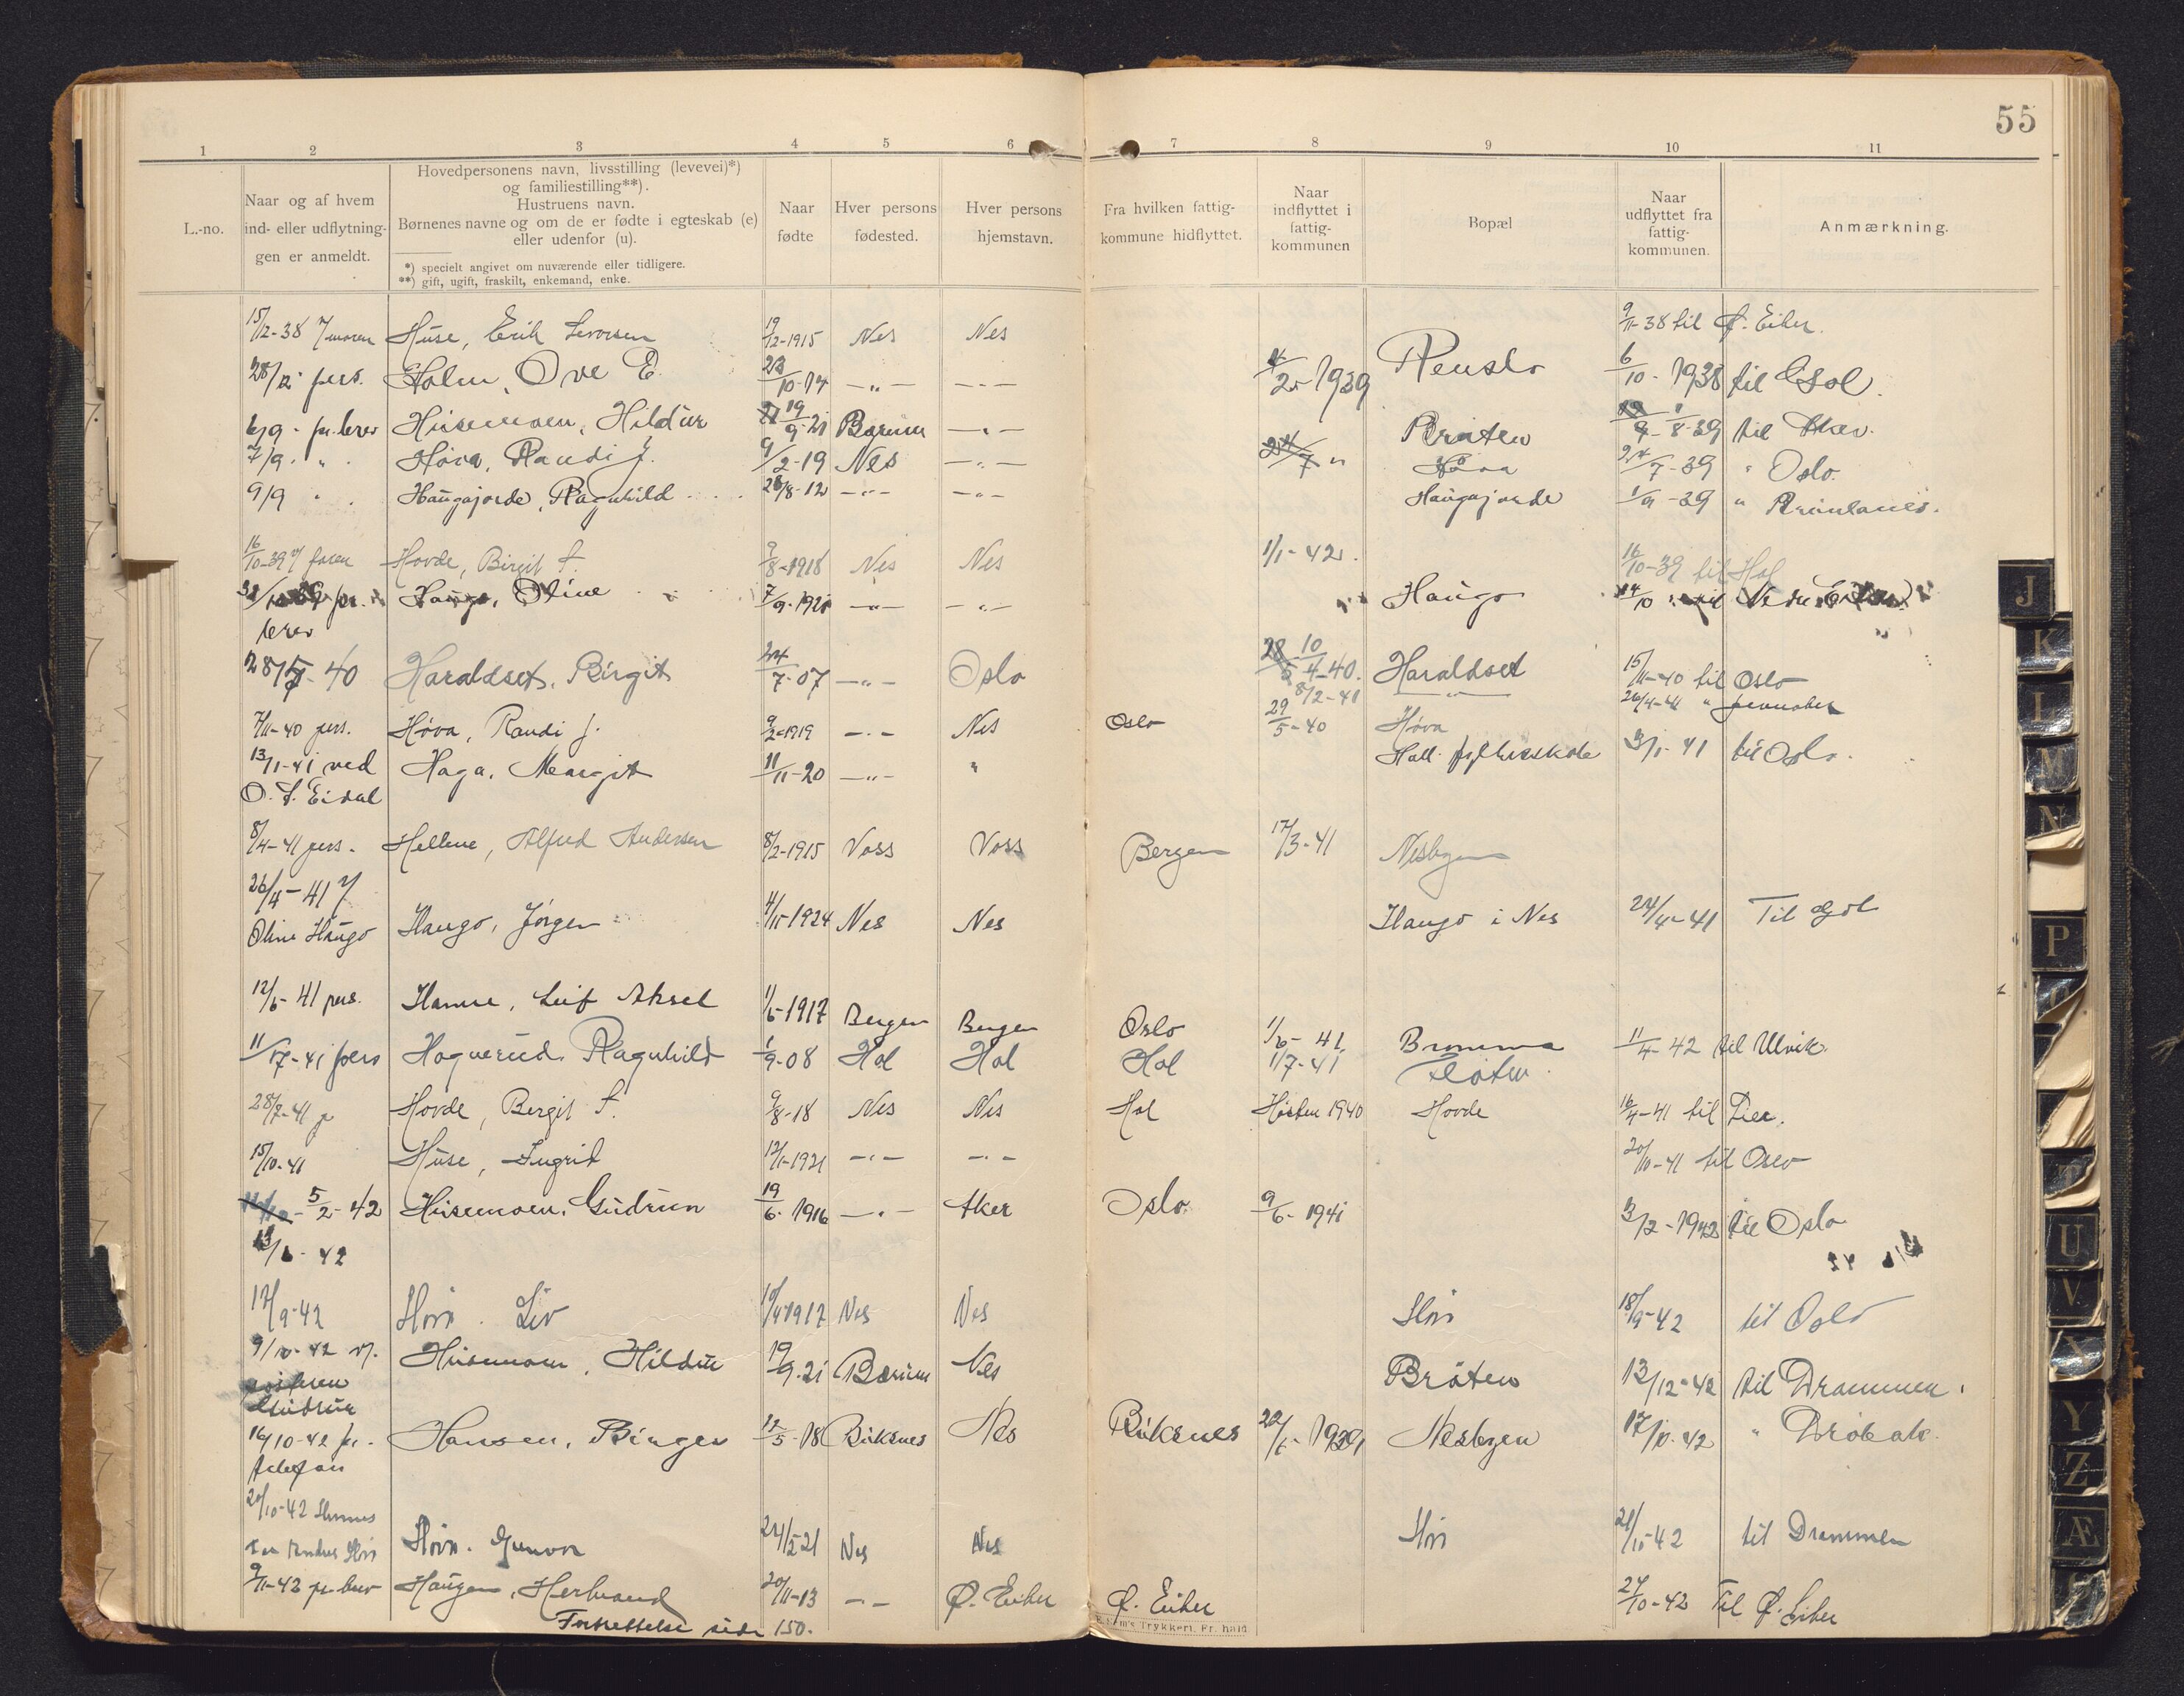 55
1 2 3 4 5 6 7 8 9 10 11
L.-no.
Naar og af hvem
ind- eller udflytnin-
gen er anmeldt.
Hovedpersonens navn, livsstilling (levevei)*)
og familiestilling**).
Hustruens navn.
Børnenes navne og om de er fødte i egteskab (e)
eller udenfor (u).
*) specielt angivet om nuværende eller tidligere.
**) gift, ugift, fraskilt, enkemand, enke.
Naar
fødte
Hver persons
fødested.
Hver persons
hjemstavn.
Fra hvilken fattig-
kommune hidflyttet.
Naar
indflyttet i
fattig-
kommunen
Bopæl
Naar
udflyttet fra
fattig-
kommunen.
Anmærkning.
15/12-38 Huse, Erik 19/2-1915 Nes Nes 9/11-38 til Ø. Eiker.
28/12 pers. Holm, Ove E. 10-14 —"— —"— 1939 6/10-1938 til Gol.
6/9 - pr. brev Husemoen, Hildur 19/9-21 Bærum —"— Bråten 8-39 til Aker.
7/9 " Høva, Randi J. 9/2-19 Nes —"— 24/7 " Høva 24/7-39 " Oslo.
9/9 " Haugajorde, Ragnhild 28/8-12 —"— —"— Haugajorde 1/9-39 "
16/10-39 v/ faren Hovde, Birgit T. 9/8-1918 Nes Nes 1/1-42. 16/10-39 til Hol
pr. Haugo, Oline 7/9-1921 —"— —"— Haugo 14/10 til Nedre
brev
28/5-40 Haraldset, Birgit 24/7-07 —"— Oslo 10/4-40. Haraldset 15/11-40 til Oslo
8/2-41 —"— 26/4-41 "
7/11-40 pers. Høva, Randi J. 9/2-1919 —"— Nes Oslo 29/5-40 Høva
13/1-41 ved Haga, Margit 11/11-20 —"— " Hall. fylkesskole 3/1-41 til Oslo.
O. T. Eidal
8/4-41 pers. Hellene, Alfred Andersen 8/2-1915 Voss Voss Bergen 17/3-41 Nesbyen
26/4-41 v/
Oline Haugo Haugo, Jørgen 4/11-1924 Nes Nes Haugo i Nes 24/4-41 Til Gol
12/6-41 pers. Hamre, Leif Aksel 1/6-1917 Bergen Bergen Oslo 1/6-41 Bromma 11/4-42 til Ulvik.
11/7-41 pers Hagnerud, Ragnhild 1/9-08 Hol Hol Hol 1/7-41 Fløten.
28/7-41 p Hovde, Bergit T. 9/8-18 Nes Nes Hol Høsten 1940 Hovde 16/4-41 til Lier.
15/10-41 Huse, Ingrid 12/1-1921 —"— —"— 20/10-41 til Oslo
5/2-42 Husemoen, Gudrun 19/6-1916 —"— Aker Oslo. 9/6-1941 3/2-1942 til Oslo
13/6-42
17/9-42 Høva. Liv 1917 Nes Nes Høva 18/9-42 til Oslo
9/10-42 v. Husemoen, Hildur 19/9-21 Bærum Nes Bråten 13/12-42 til Drammen.
søsteren
Gudrun
16/10-42 pr. Hansen, Birger 12/5-18 Buksnes Nes Buksnes 22/6-1939 Nesbyen 17/10-42 " Drøbak.
telefon
20/10-42
Høva. Gunvor 24/2-21 Nes Nes Høva 21/10-42 til Drammen
9/11-42 pr. brev Haugen, Herbrand 20/11-13 —"— Ø. Eiker Ø. Eiker 27/10-42 Til Ø. Eiker
Fortsettelse side 150.
Trykkeri, Fr.hald
J
K
L
M
N
P
U
V
X
Y
Z
Æ